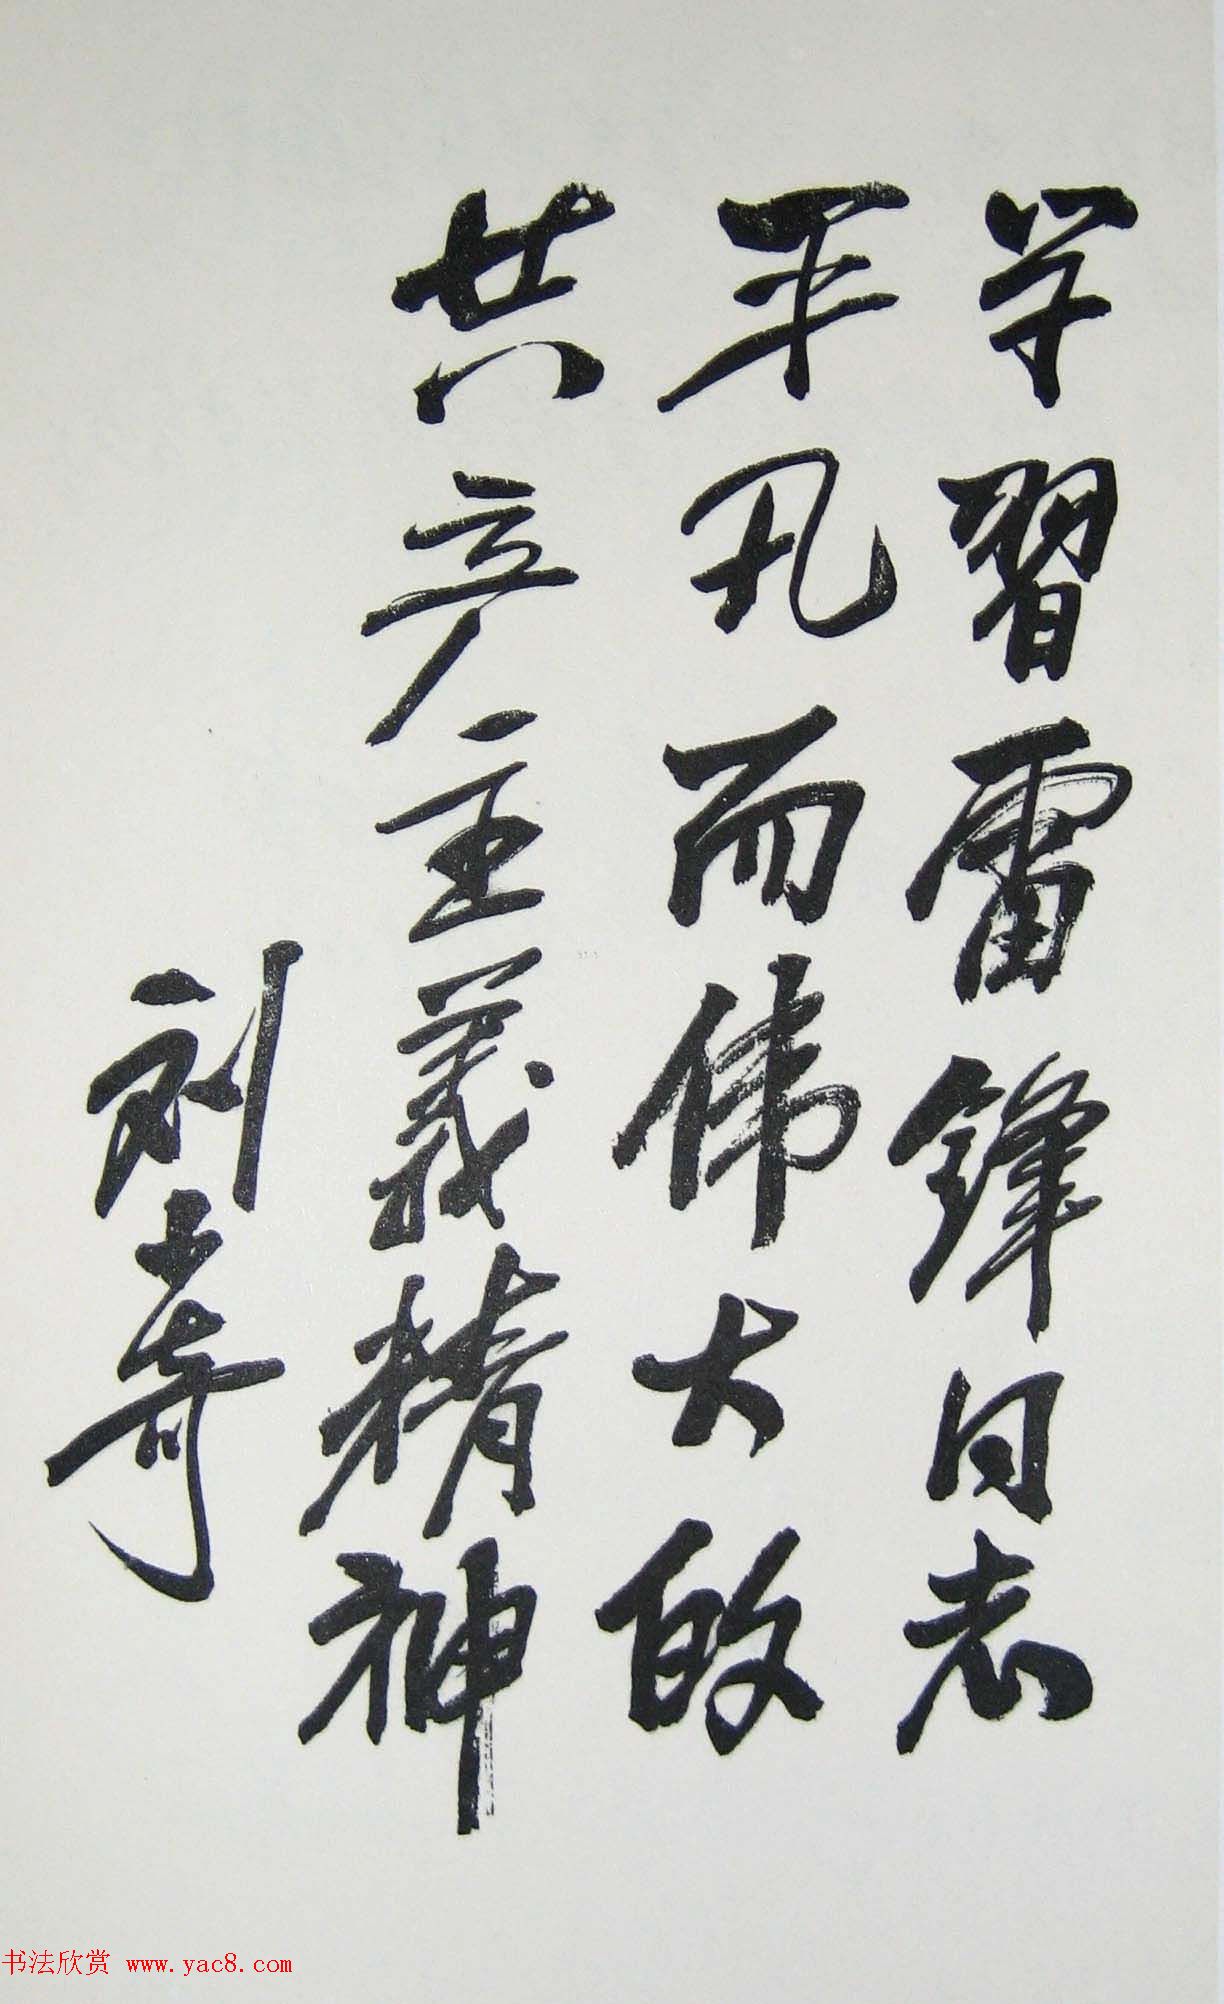 学習雷锋同志
平凡而伟大的
共产主義精神
刘少奇
书法欣赏 www.yac8.com